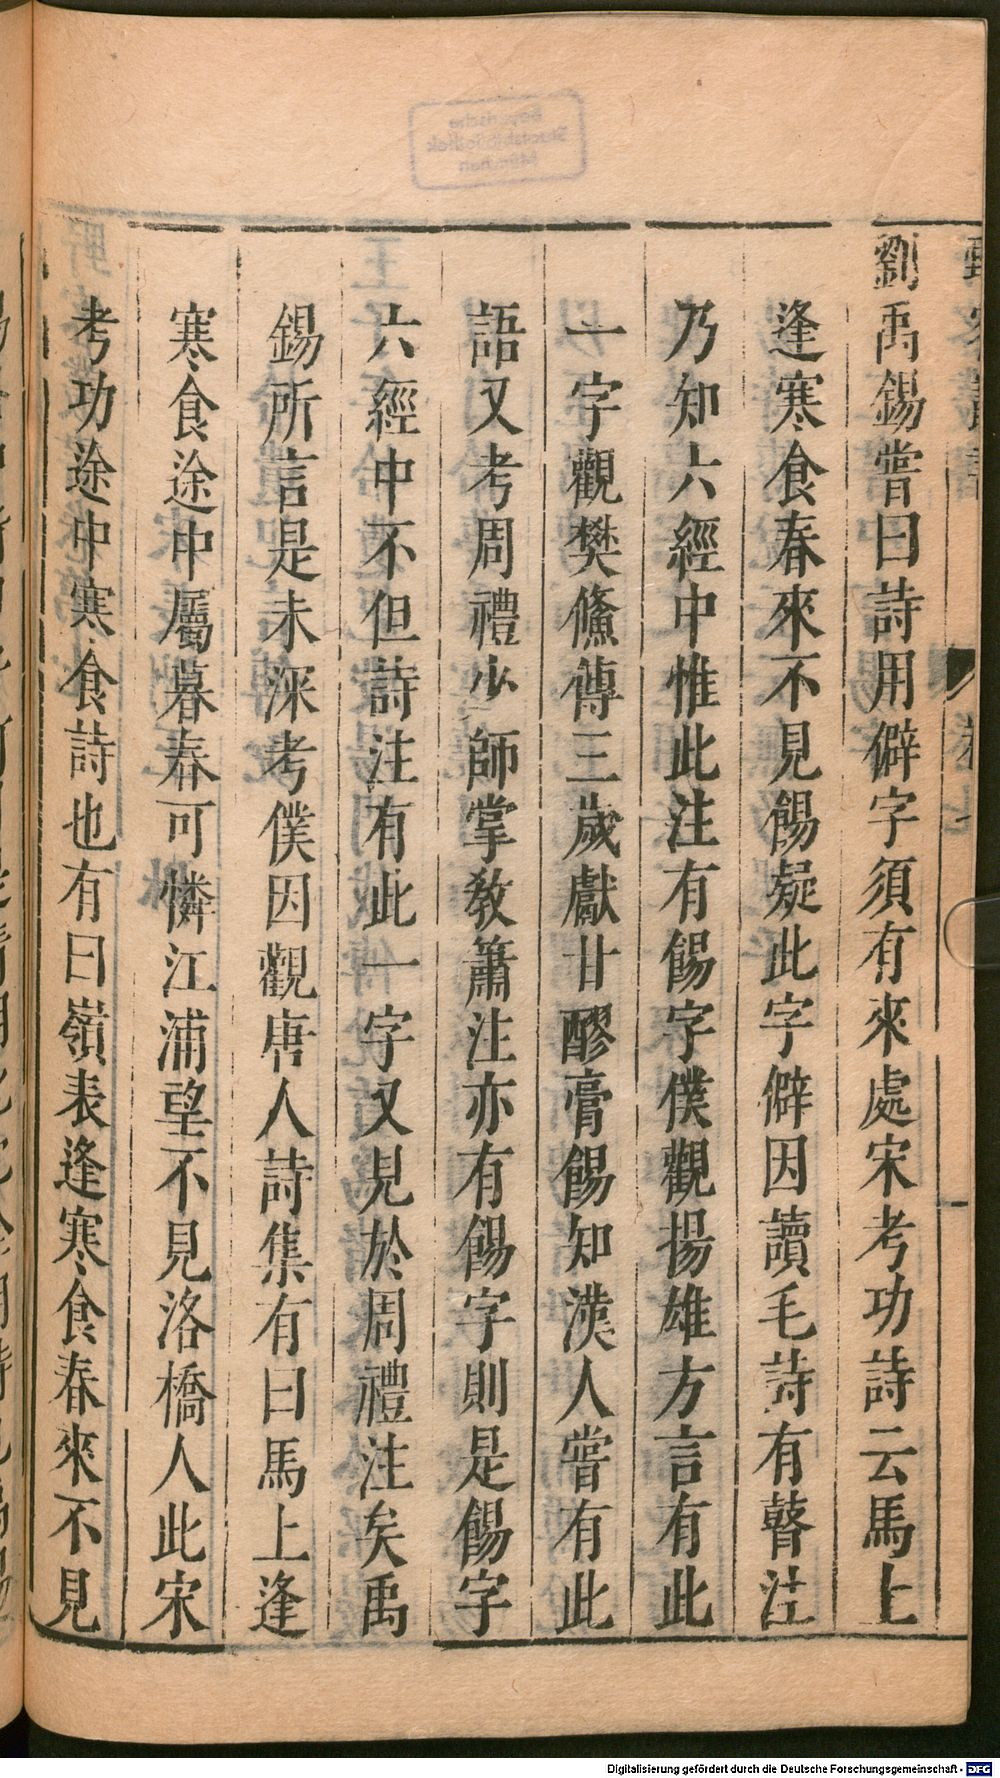 劉禹錫嘗曰詩用僻字須有來處宋考功詩云馬上
逢寒食春來不見餳疑此字僻因讀毛詩有瞽注
乃知六經中惟此注有餳字僕觀揚雄方言有此
一字觀樊鯈傳三歲獻甘醪膏餳知漢人嘗有此
語又考周禮少師掌敎簫注亦有餳字則是餳字
六經中不但詩注有此一字又見於周禮注矣禹
錫所言是未深考僕因觀唐人詩集有曰馬上逢
寒食途中屬暮春可憐江浦望不見洛橋人此宋
考功途中寒食詩也有曰嶺表逢寒食春來不見
Bayerische
Staatsbibliothek
München
Digitalisierung gefördert durch die Deutsche Forschungsgemeinschaft - DFG